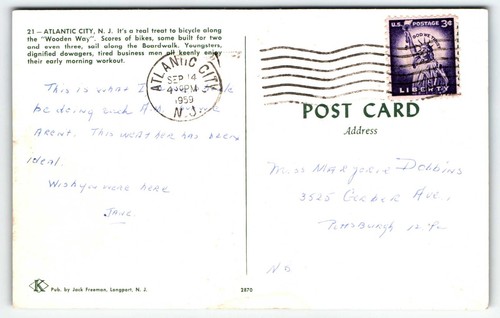 21 — ATLANTIC CITY, N. J. It's a real treat to bicycle along
the "Wooden Way". Scores of bikes, some built for two
and even three, sail along the Boardwalk. Youngsters,
dignified dowagers, tired business men all keenly enjoy
their early morning workout.
ATLANTIC CITY
SEP 14
4 PM
1959
N.J.
U.S. POSTAGE 3¢
IN GOD WE TRUST
LIBERTY
POST CARD
Address
This is what I
be doing such
Arent. This weather has been
ideal.
Wish you were here
Jane
Miss Marjorie Dobbins
3525 Gerber Ave.,
Pittsburgh 12, Pa.
K
Pub. by Jack Freeman, Longport, N. J.
2870